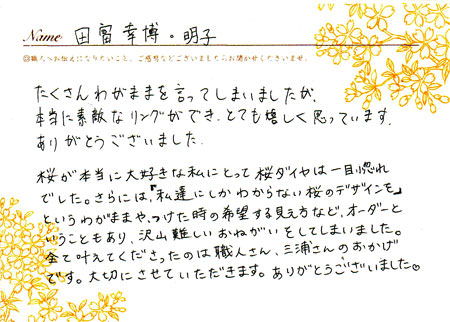 Name 田宮幸博・明子
◎職人へお伝えになりたいこと、ご感想などございましたらお聞かせくださいませ。
たくさんわがままを言ってしまいましたが、
本当に素敵なリングができ、とても嬉しく思っています。
ありがとうございました。
桜が本当に大好きな私にとって桜ダイヤは一目惚れ
でした。さらには、『私達にしかわからない桜のデザインを』
というわがままや、つけた時の希望する見え方など、オーダーと
いうこともあり、沢山難しいおねがいをしてしまいました。
全て叶えてくださったのは職人さん、三浦さんのおかげ
です。大切にさせていただきます。ありがとうございました。